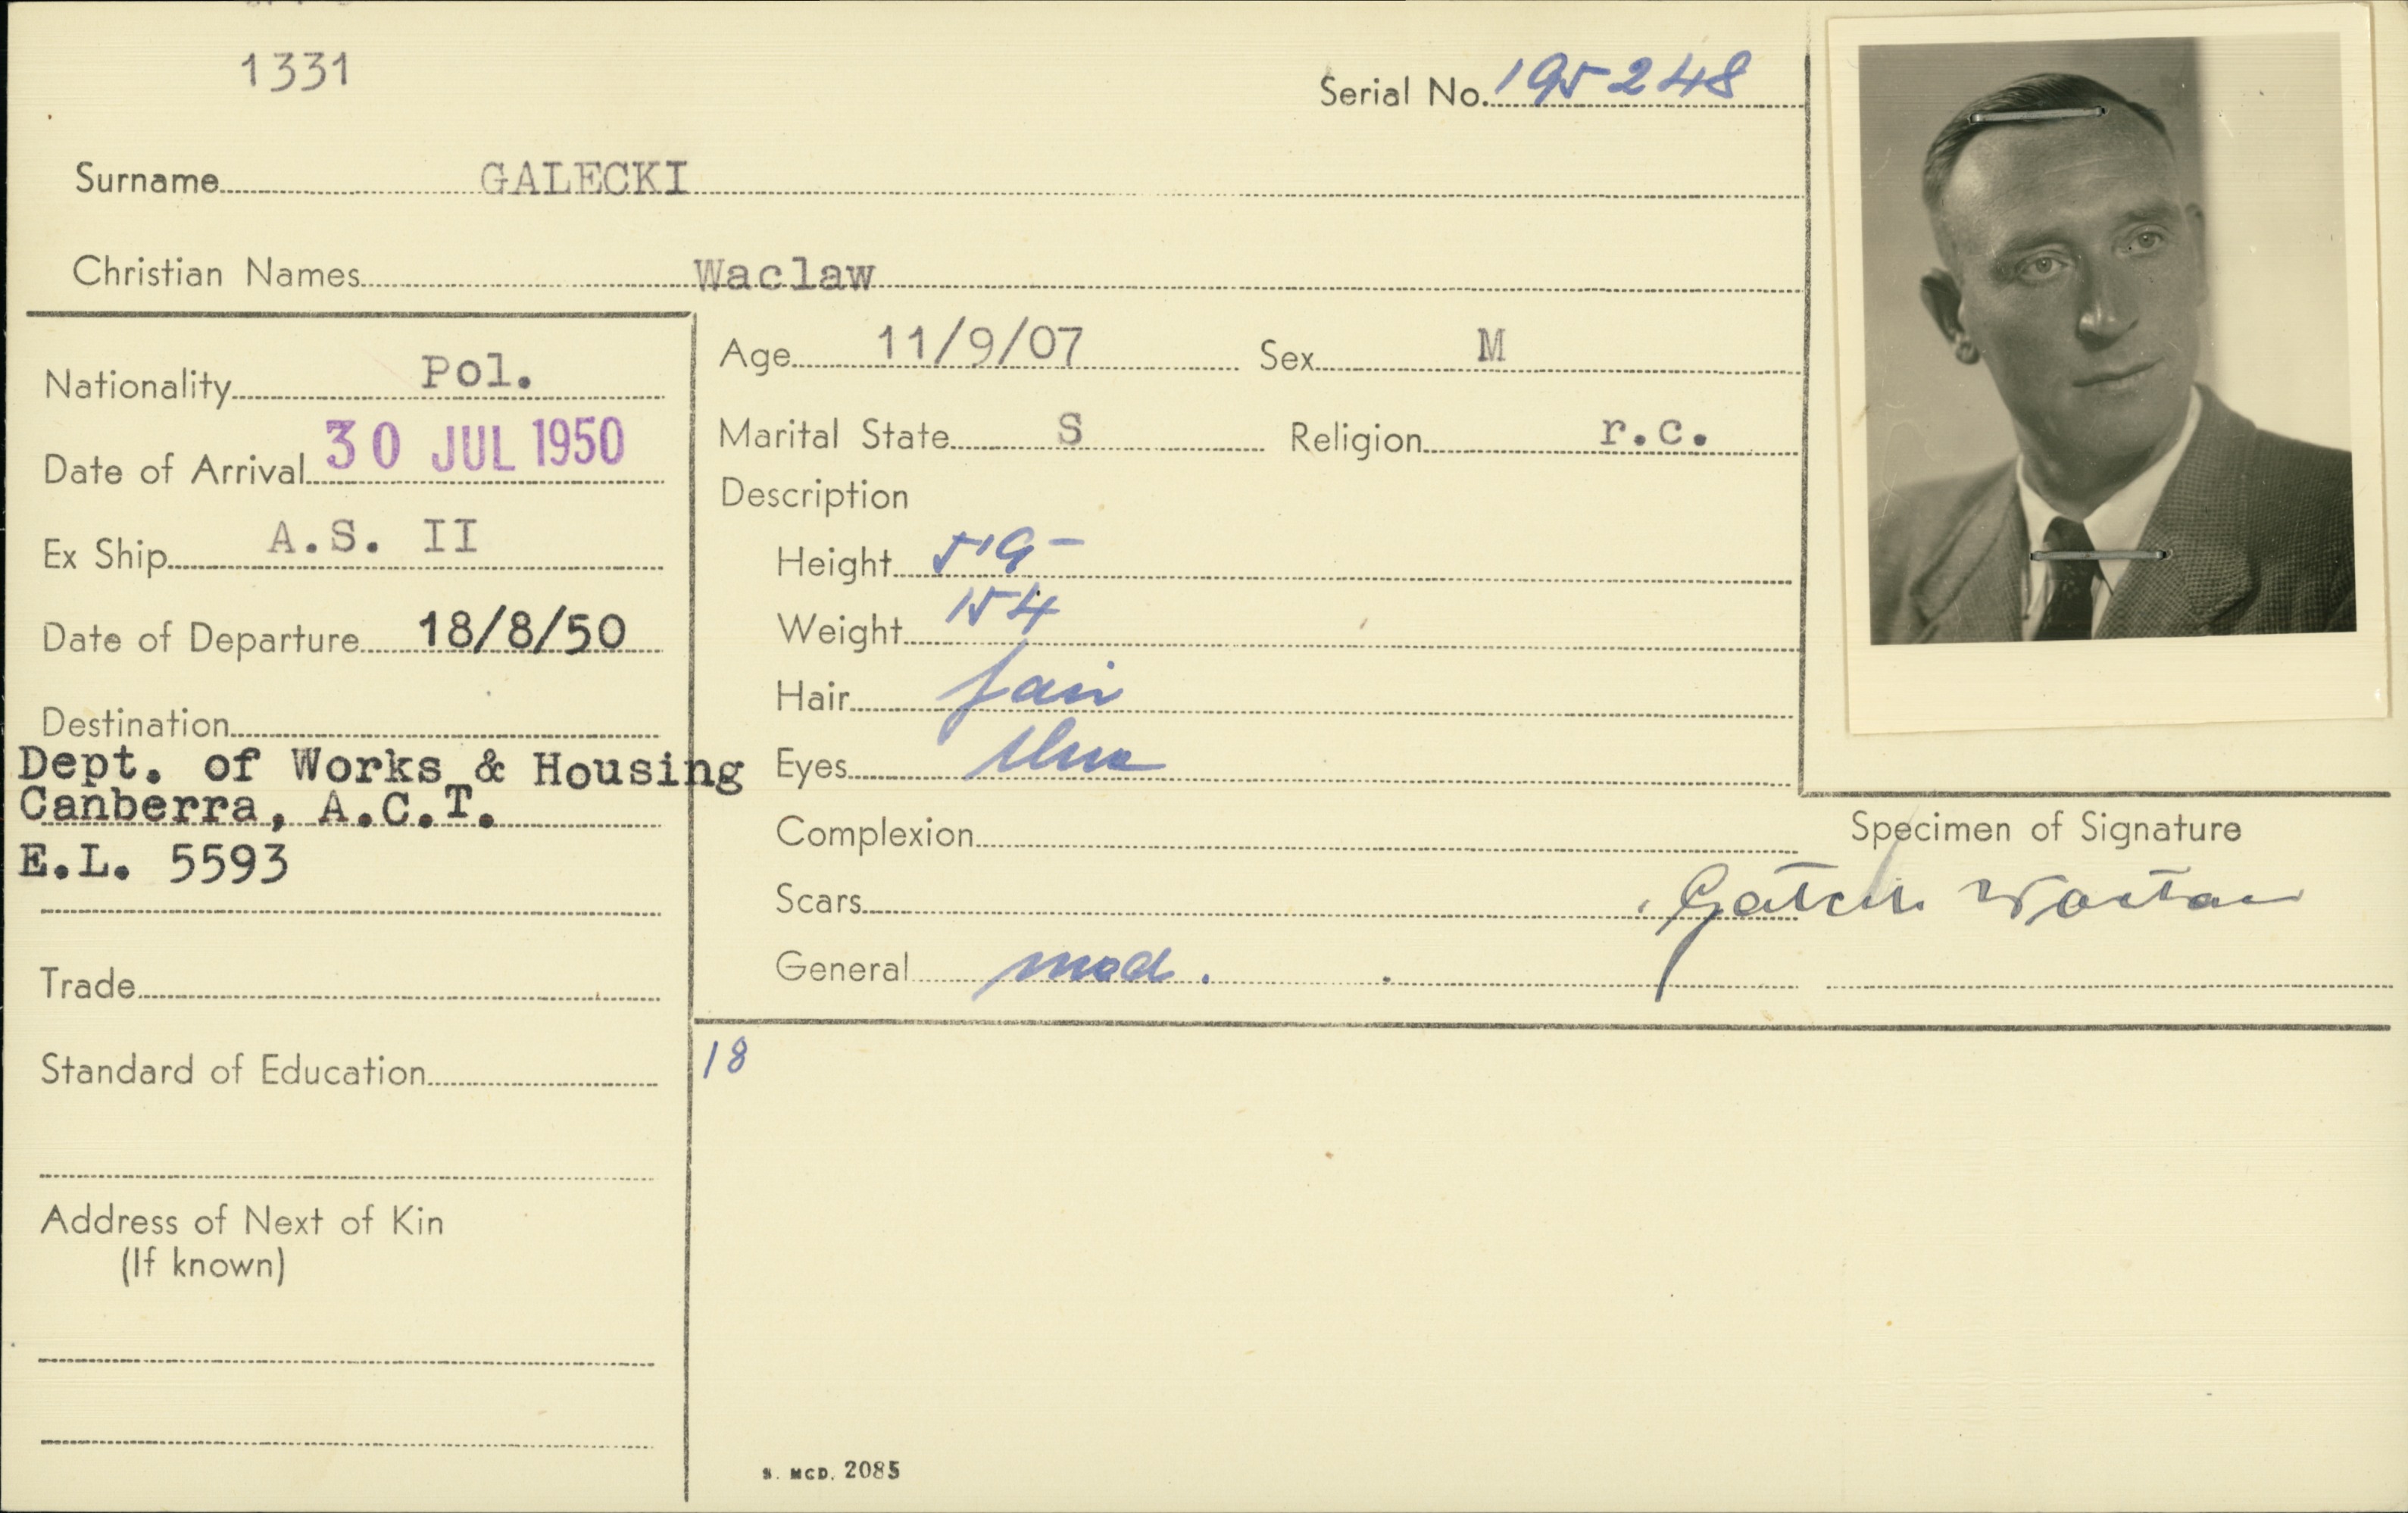 1331
Serial No. 195248
Surname GALECKI
Christian Names Waclaw
Nationality Pol.
Date of Arrival 30 JUL 1950
Ex Ship A.S. II
Date of Departure 18/8/50
Destination
Dept. of Works & Housing
Canberra, A.C.T.
E.L. 5593
Trade
Standard of Education
Address of Next of Kin
(If known)
Age 11/9/07 Sex M
Marital State S Religion r.c.
Description
Height 5'9-
Weight 154
Hair fair
Eyes blue
Complexion
Scars
General med.
Specimen of Signature
18
S. MCD. 2085